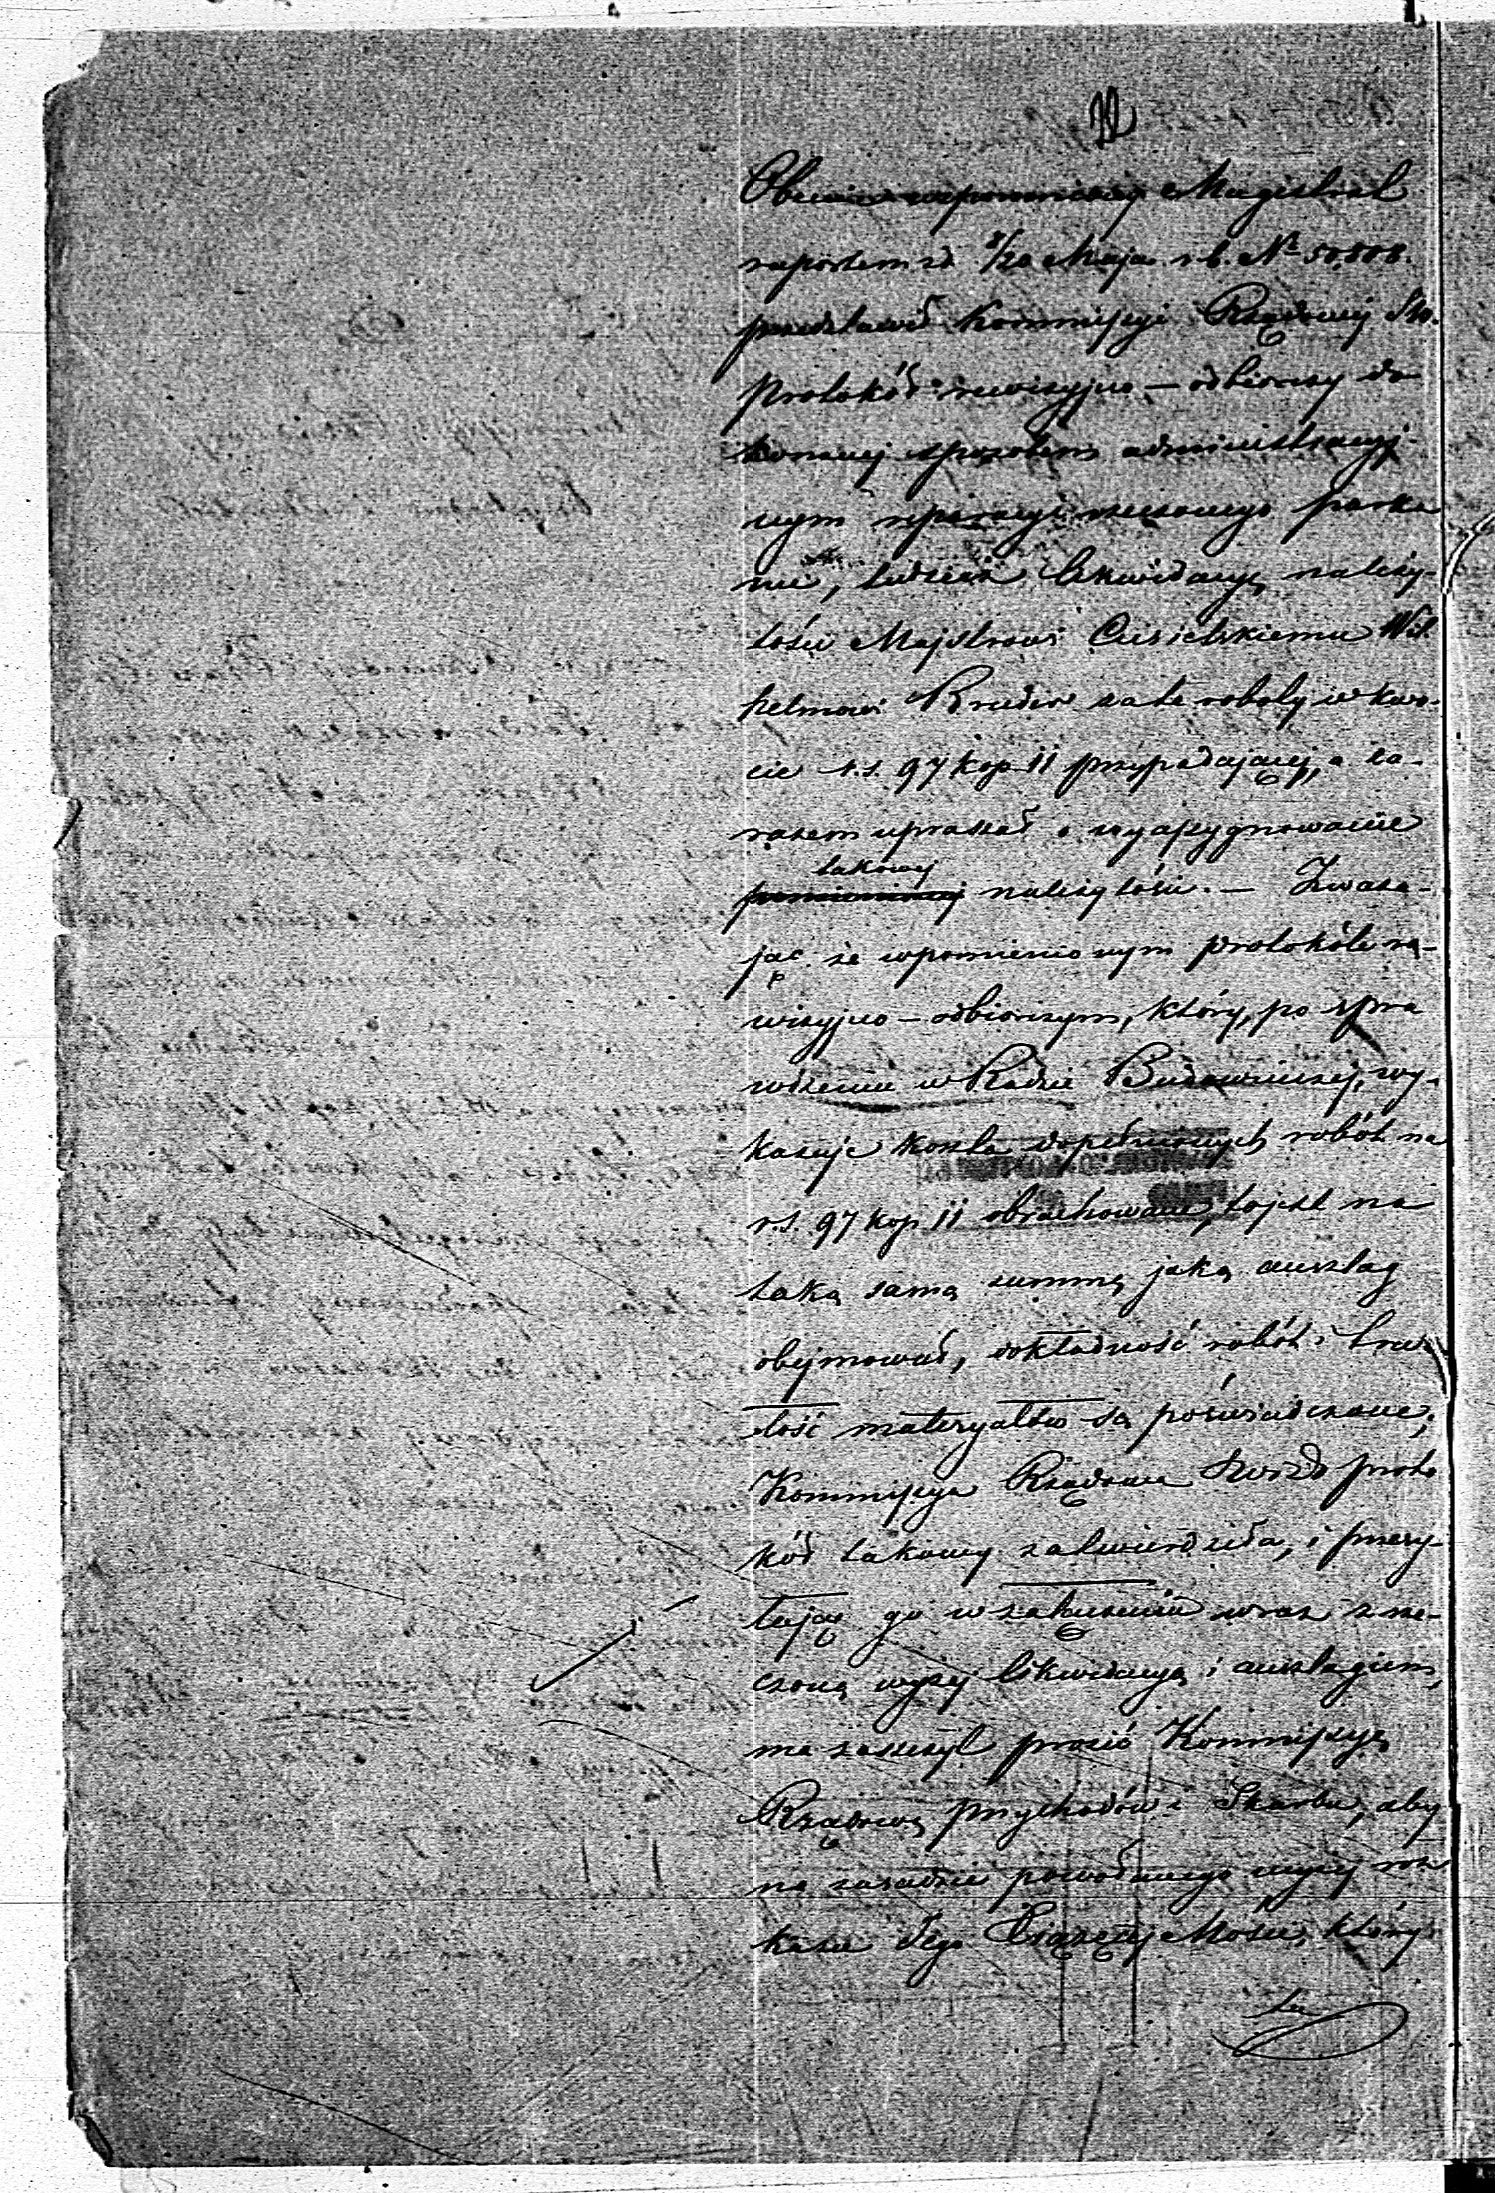 Obecnie wspomniony Magistrat
raportem z d 8/20 Maja r. b. Nº 50,508.
przedstawił Kommissyi Rządowej
protokół rewizyjno – odbiorczy do
konanej sposobem administracyj-
nym reperacyi rzeczonego parka
nu, tudzież likwidacyę należy-
tości Majstrowi Ciesielskiemu Wil
helmowi Bruder za te roboty w kwo-
cie r. s. 97 kop 11 przypadającej, a za-
razem upraszał o wyassygnowanie
takowej
należytości. – Zważa-
jąc że wpomnienionym protokóle re-
wizyjno – odbiorczym, który, po spra
wdzeniu w Radzie Budowniczej, wy-
kazuje koszta dopełnionych robót na
r. s. 97 kop 11 obrachowane, tojest na
taką samą summę jaką anszlag
obejmował, dokładność robót i trwa
łość materyałów są poświadczone,
Kommissya Rządowa proto
kół takowy zatwierdziła, i przesy-
łając go w załączeniu wraz z rze-
czoną wyżej likwidacyą i anszlagiem,
ma zaszczyt prosić Kommissyę
Rządową Przychodów i Skarbu, aby
na zasadzie powołanego wyżej roz
kazu Jego Xiążęcej Mości, który